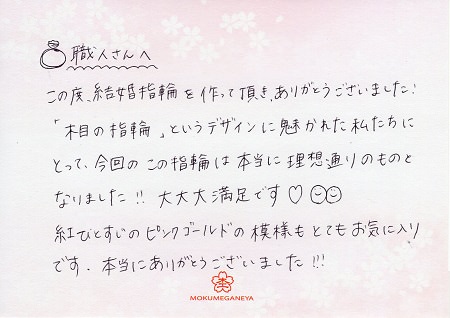 職人さんへ
この度、結婚指輪を作って頂き、ありがとうございました!
「木目の指輪」というデザインに魅かれた私たちに
とって、今回のこの指輪は本当に理想通りのものと
なりました!! 大大大満足です♡
紅ひとすじのピンクゴールドの模様もとてもお気に入り
です. 本当にありがとうございました!!!
MOKUMEGANEYA